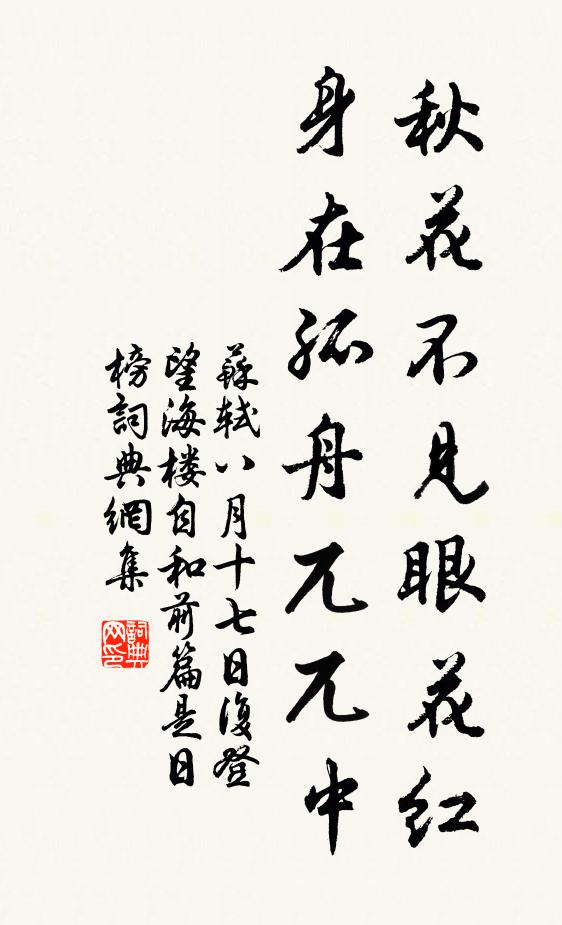 秋花不見眼花紅
身在孤舟兀兀中
蘇軾八月十七日復登
望海楼自和前篇是日
榜詞典網集
詞典
网印